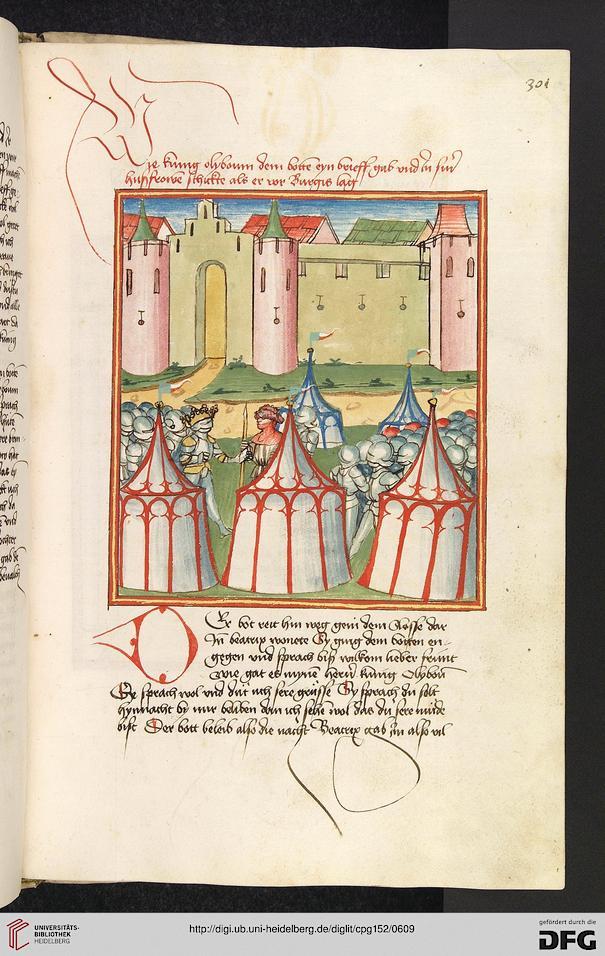 301
Wie kunig olyboum dem botten eyn brieff gab vnd in sin
husfrowe schickte als er vor Burgis lag
Der bot reit hin weg gein dem Slosse dar
Inn beatrix wonete Sy ging dem botten en-
gegen vnd sprach biß wolkom lieber frunt
wie gat es mynem herrn kunig Olyboum
Er sprach wol vnd dut uch sere grüsse Sy sprach du solt
hynnacht by mir beliben dan ich sehen wol das du sere müde
bist Der bott beleib also die nacht Beatrix gab im also vil
UNIVERSITÄTS-
BIBLIOTHEK
HEIDELBERG
http://digi.ub.uni-heidelberg.de/diglit/cpg152/0609
gefördert durch die
DFG